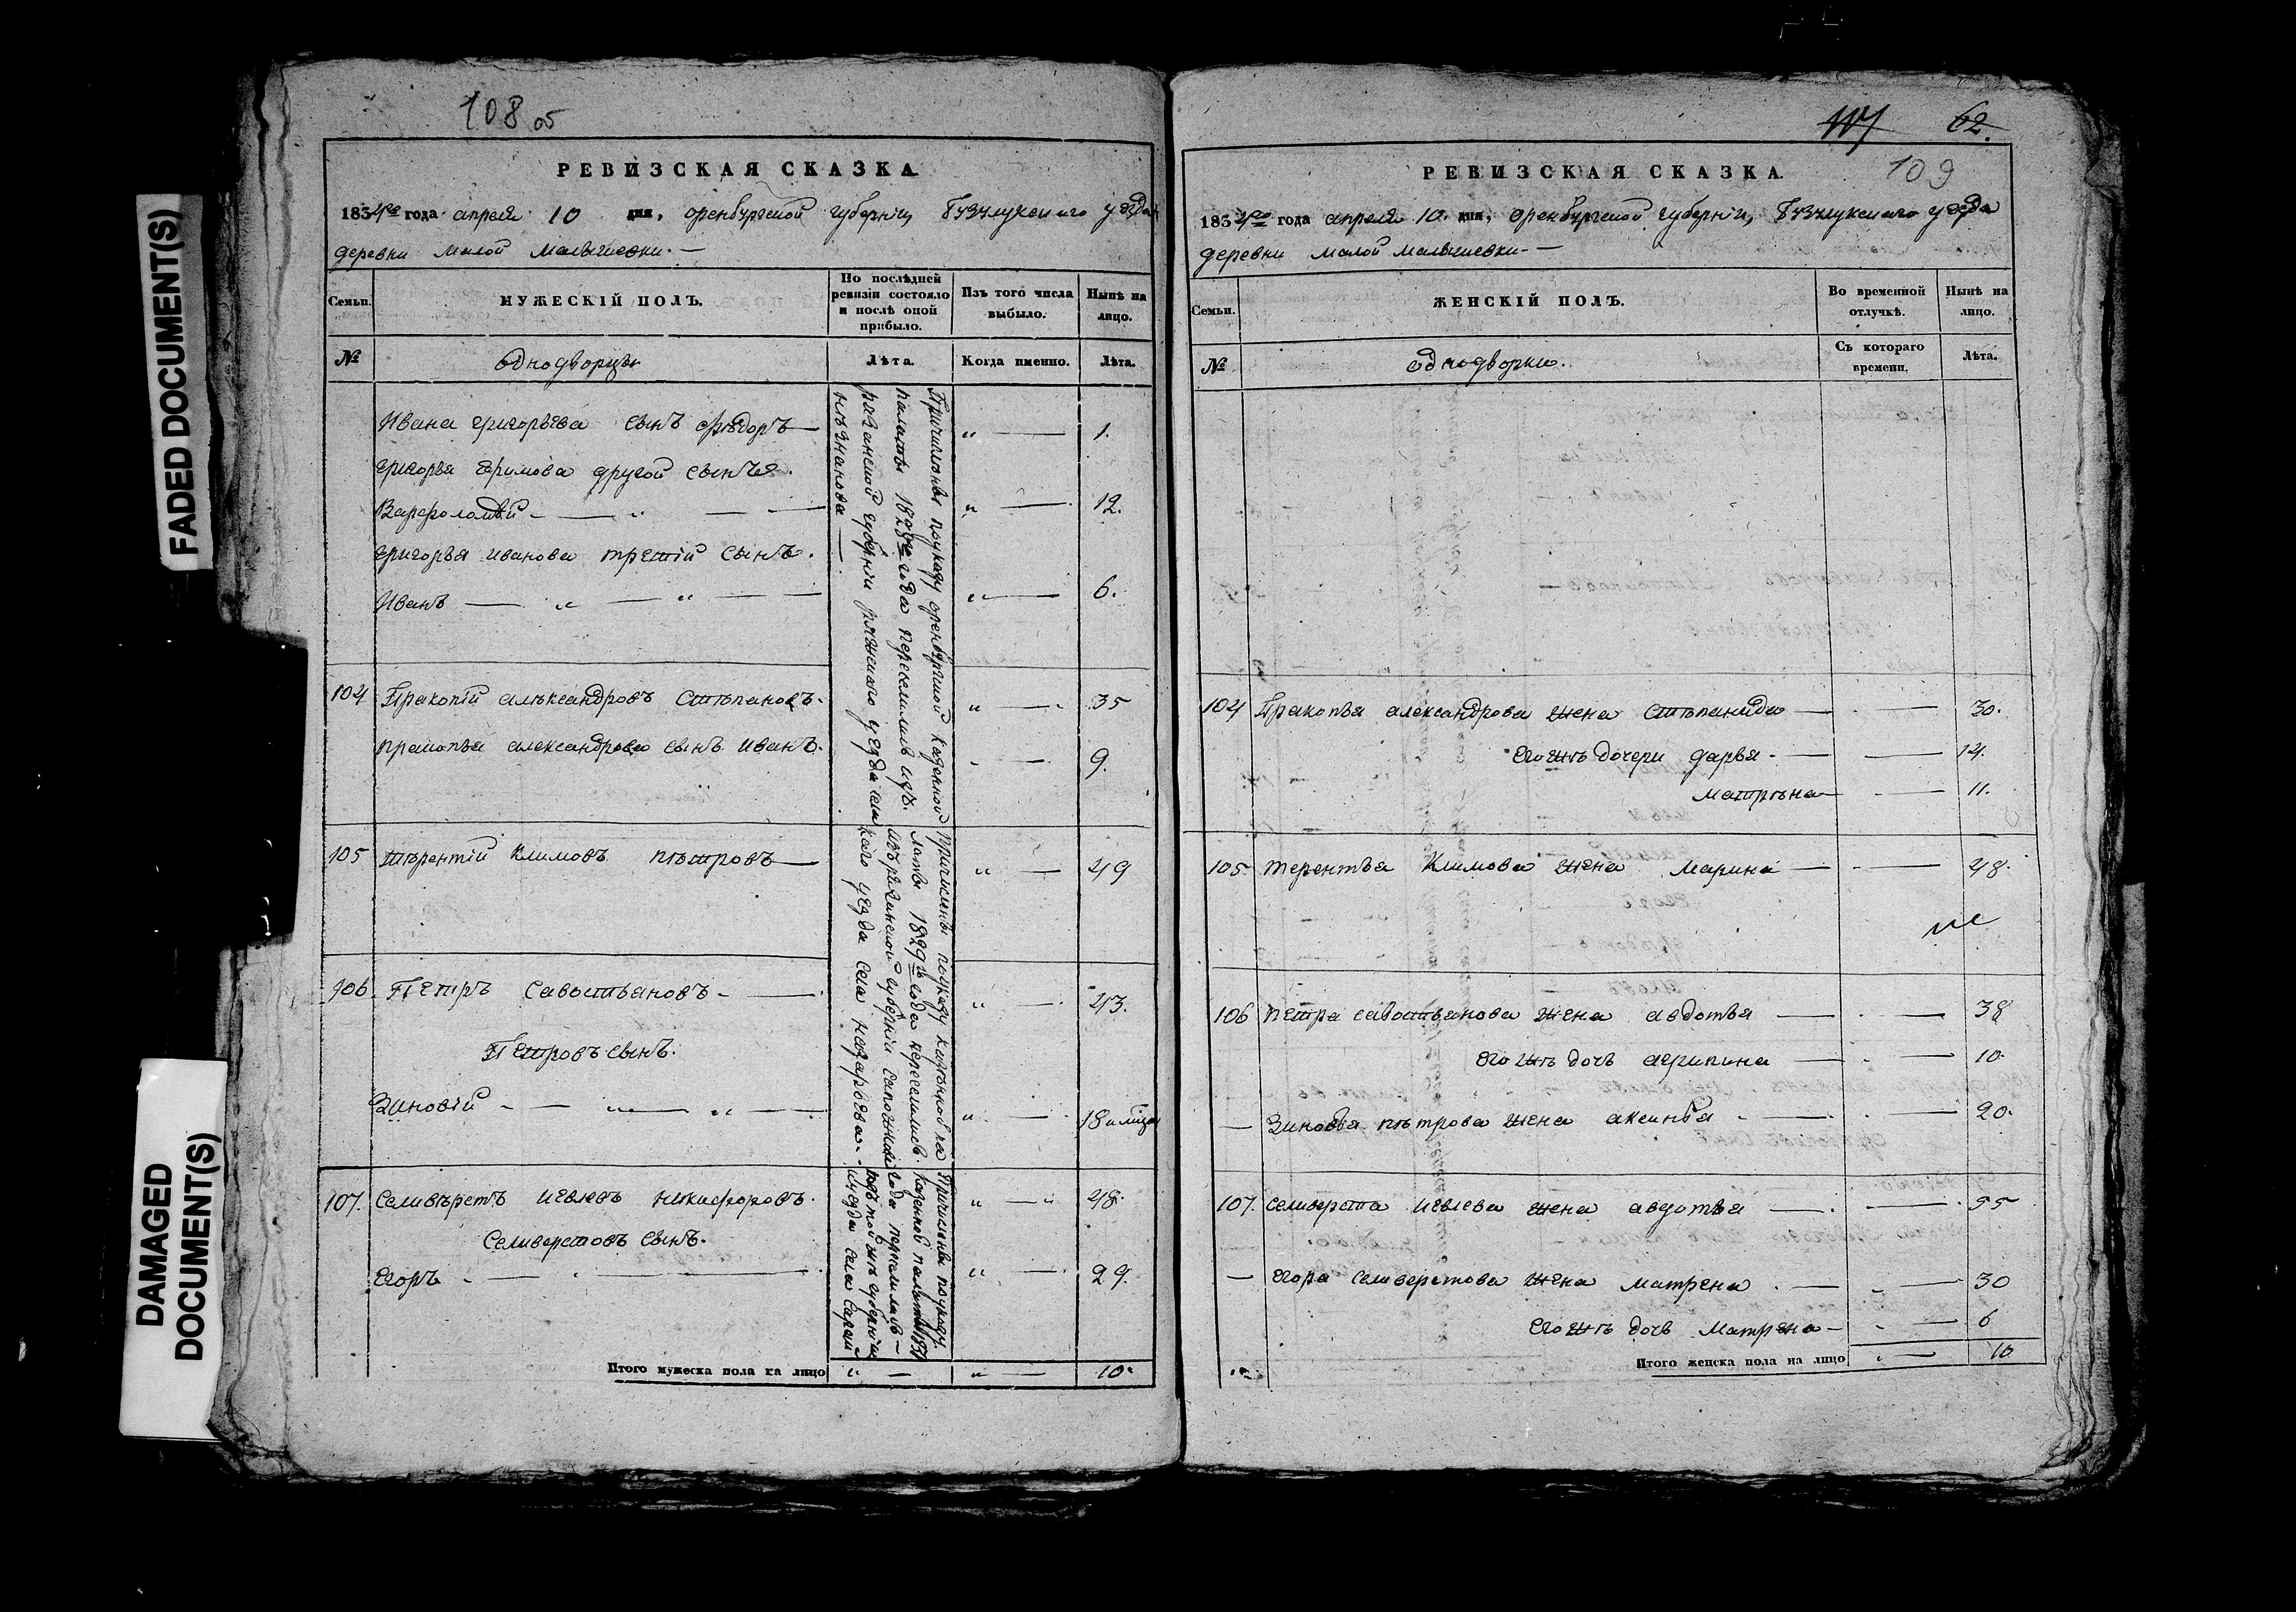 FADED DOCUMENT(S)
DAMAGED
DOCUMENT(S)
108 об
РЕВИЗСКАЯ СКАЗКА
1834го года апреля 10 дня, оренбургской губерніи, бузулукскаго уезда
деревни малой малышевки. —
Семьи.
МУЖЕСКІЙ ПОЛЪ.
По послѣдней
ревизіи состояло
и послѣ оной
прибыло.
Изъ того числа
выбыло.
Нынѣ на
лицо.
№
однодворцы
Лѣта.
Когда именно.
Лѣта.
Ивана григорьева сынъ Ѳѣдоръ — „ — 1.
григорья другой сынъ.
Варфоломѣй — „ — „ — 12.
григорья иванова третій сынъ.
Иванъ — „ — „ — „ — 6.
104 Пракопій алѣксандровъ Стѣпановъ. „ — 35
пракопья александрова сынъ иванъ. — 9.
105 Тѣрентій Климовъ пѣтровъ — „ — 49
106 Пѣтръ Савостьяновъ — „ — 43.
Петровъ сынъ.
Зиновій — „ — „ — „ — 18
107. Селивѣрстъ Иевлевъ никифоровъ. „ — 48.
Селиверстовъ сынъ.
Егоръ — „ — 29.
Причислены поуказу оренбургской казенной
палаты года переселились изъ
рязанской губерніи ряжскаго уезда села
Причислены поуказу казенной па
латы 1829го года переселились
изъ рязанской губерніи
каго уезда села назарьева
Причислены поуказу
казенной палаты
года переселились
изъ той жъ губерніи
уезда села
Итого мужеска пола на лицо „ — „ — 10.
117 62.
109
РЕВИЗСКАЯ СКАЗКА.
1834го года апреля 10 дня, оренбургской губерніи, бузулукскаго уезда
деревни малой малышевки —
Семьи.
ЖЕНСКІЙ ПОЛЪ.
Во временной
отлучкѣ.
Нынѣ на
лицо.
№
однодворки.
Съ котораго
времени.
Лѣта.
104 Пракопья александрова жена Стѣпанида — 30.
его жъ дочери дарья — 14.
матрѣна — 11.
105. терентья Климова жена марина — 48.
106 пѣтра савостьянова жена авдотья — 38
его жъ дочь агрипина — 10.
— Зиновья пѣтрова жена аксинья — 20.
107. селиверста Иевлева жена авдотья — 55
— егора селиверстова жена матрена — 30
его жъ дочь матрена — 6
Итого женска пола на лицо „ — 10